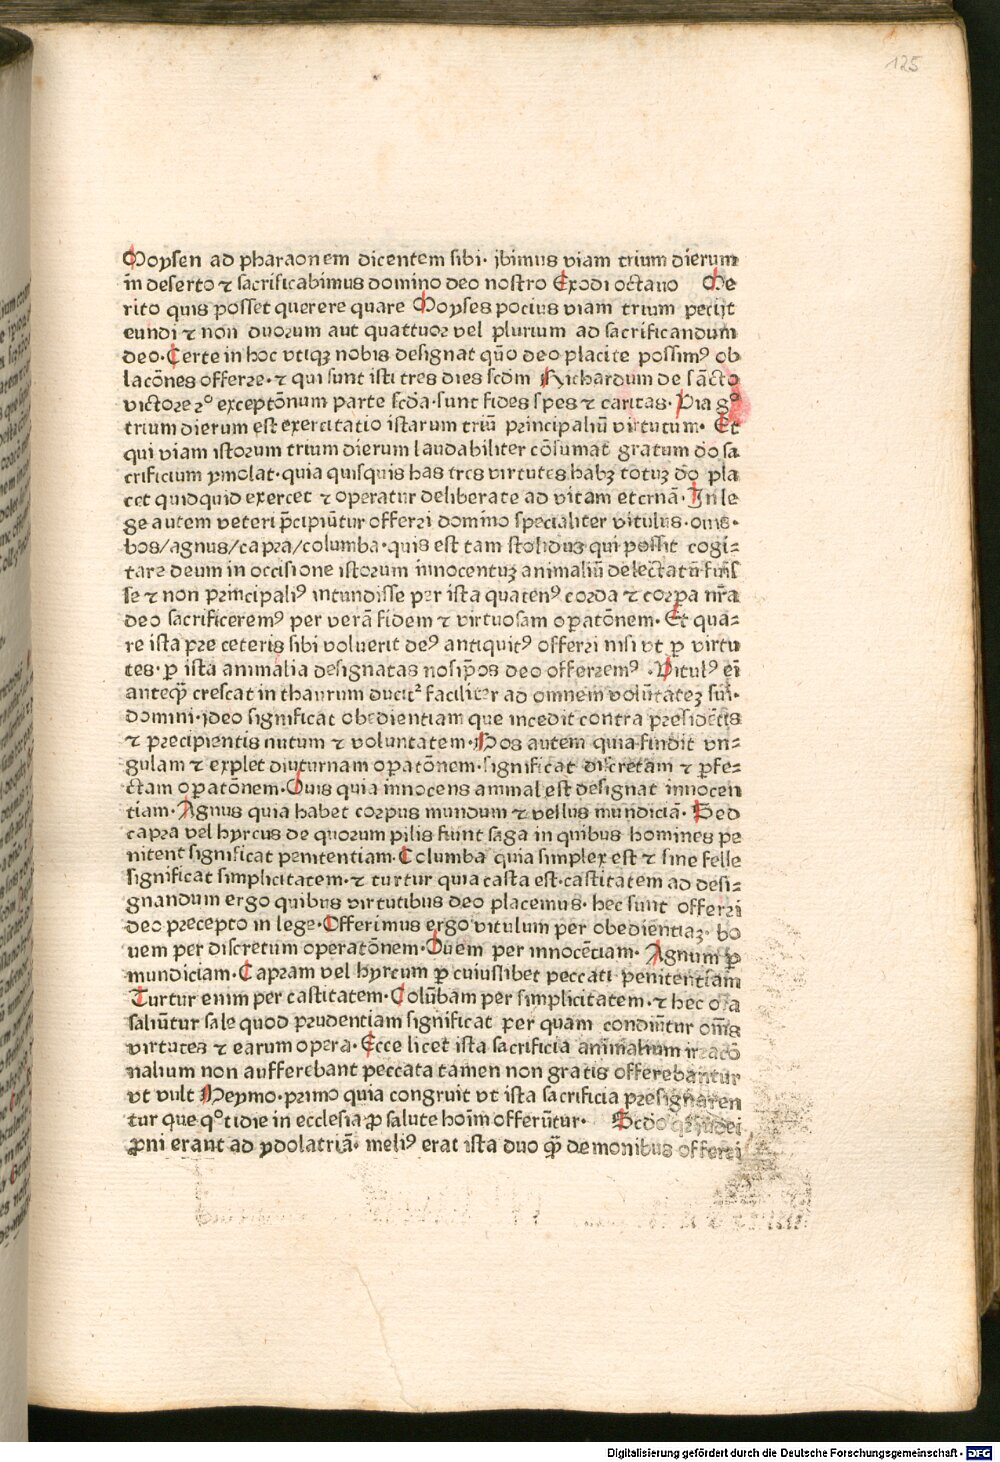 125
Moysen ad pharaonem dicentem sibi· jbimus viam trium dierum
in deserto ⁊ sacrificabimus domino deo nostro Exodi octauo Me
rito quis posset querere quare Moyses pocius viam trium pecijt
eundi ⁊ non duorum aut quattuor vel plurium ad sacrificandum
deo· Certe in hoc vtiqꝫ nobis designat qũo deo placite possimꝰ ob
lacõnes offerre· ⁊ qui sunt isti tres dies scdm Richardum de sãcto
victore 2º exceptõnum parte scda· sunt fides spes ⁊ caritas· Via gº
trium dierum est exercitatio istarum triũ principaliũ virtutum· Et
qui viam istorum trium dierum laudabiliter cõsumat gratum do sa
crificium ymolat· quia quisquis has tres virtutes habꝫ totuꝫ do pla
cet quidquid exercet ⁊ operatur deliberate ad vitam eternã· In le
ge autem veteri p̃cipiũtur offerri domino specialiter vitulus· ouis·
bos/agnus/capra/columba· quis est tam stolidus qui possit cogi⸗
tare deum in occisione istorum innocentuꝫ animaliũ delectatũ fuis
se ⁊ non principaliꝰ intundisse per ista quatenꝰ corda ⁊ corpa nr̃a
deo sacrificeremꝰ per verã fidem ⁊ virtuosam opatõnem· Et qua⸗
re ista pre ceteris sibi voluerit deꝰ antiquitꝰ offerri nisi vt ꝑ virtu
tes· ꝑ ista animalia designatas nosip̃os deo offerremꝰ· Vitulꝰ ei̇̃
anteqꝫ̃ crescat in thaurum ducitᷣ faciliter ad omnem volũtateꝫ sui·
domini· jdeo significat obedientiam que incedit contra presidẽtis
⁊ precipientis nutum ⁊ voluntatem· Bos autem quia findit vn⸗
gulam ⁊ explet diuturnam opatõnem· significat discretam ⁊ ꝑfe⸗
ctam opatõnem· Ouis quia innocens animal est designat innocen
tiam· Agnus quia habet corpus mundum ⁊ vellus mundiciã· Sed
capra vel hyrcus de quorum pilis fiunt saga in quibus homines pe
nitent significat penitentiam· Columba quia simplex est ⁊ sine felle
significat simplicitatem· ⁊ turtur quia casta est· castitatem ad desi⸗
gnandum ergo quibus virtutibus deo placemus· hec sunt offerri
deo precepto in lege· Offerimus ergo vitulum per obedientiaꝫ· bo
uem per discretum operatõnem· Ouem per innocẽtiam· Agnum ꝑ
mundiciam· Capram vel hyrcum ꝑ cuiuslibet peccati penitentiam
Turtur enim per castitatem· Colũbam per simplicitatem· ⁊ hec oĩa
saliũtur sale quod prudentiam significat per quam condiũtur om̃s
virtutes ⁊ earum opera· Ecce licet ista sacrificia animalium irracõ
nalium non aufferebant peccata tamen non gratis offerebantur
vt vult Heymo· primo quia congruit vt ista sacrificia presignaren
tur que qºtidie in ecclesia ꝓ salute hoim offerũtur· Scdo qꝛ iudei
ꝓni erant ad ydolatriã· meliꝰ erat ista duo qꝫ̃ demonibus offerri
Digitalisierung gefördert durch die Deutsche Forschungsgemeinschaft - DFG